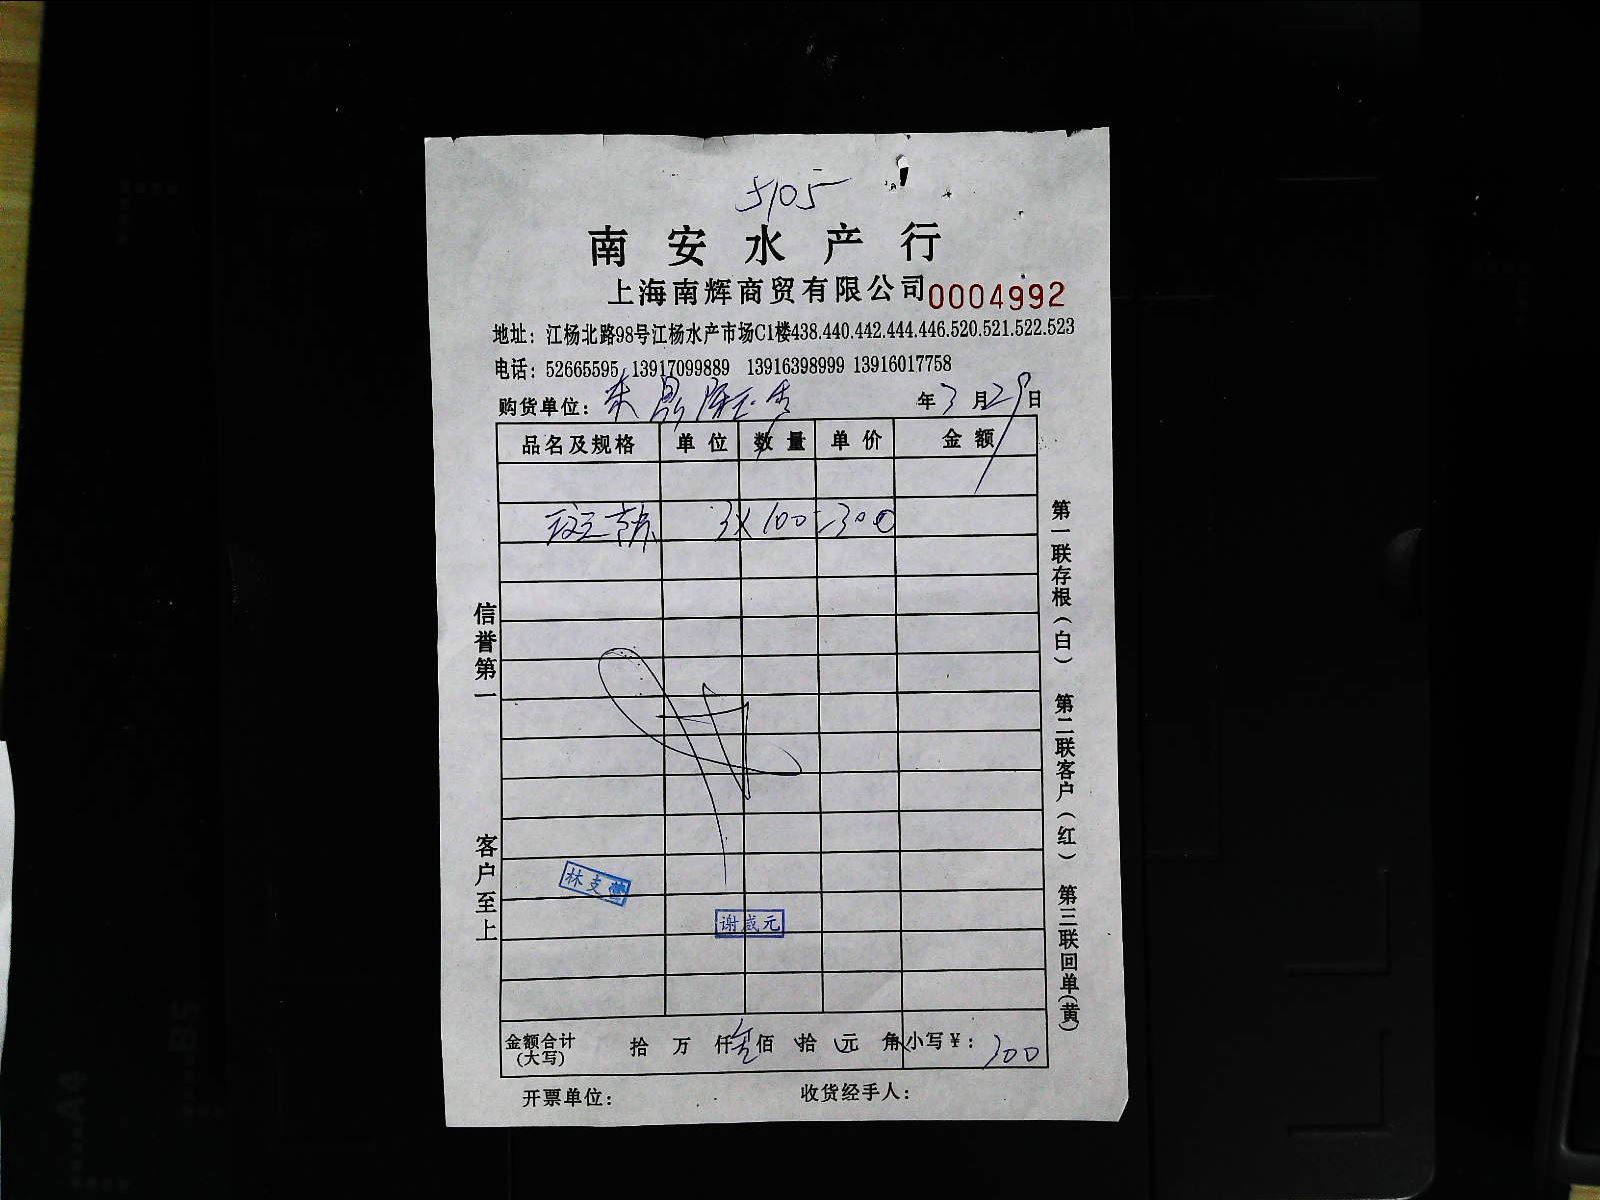 5105
南安水产行
上海南辉商贸有限公司 0004992
地址：江杨北路98号江杨水产市场C1楼438.440.442.444.446.520.521.522.523
电话：52665595 13917099889 13916398999 13916017758
购货单位： 年3月29日
品名及规格 单位 数量 单价 金额
3×100=300
林支
谢成元
金额合计(大写) 拾 万 仟 佰 拾 元 角 小写￥：300
开票单位： 收货经手人：
信誉第一 客户至上
第一联存根（白） 第二联客户（红） 第三联回单（黄）